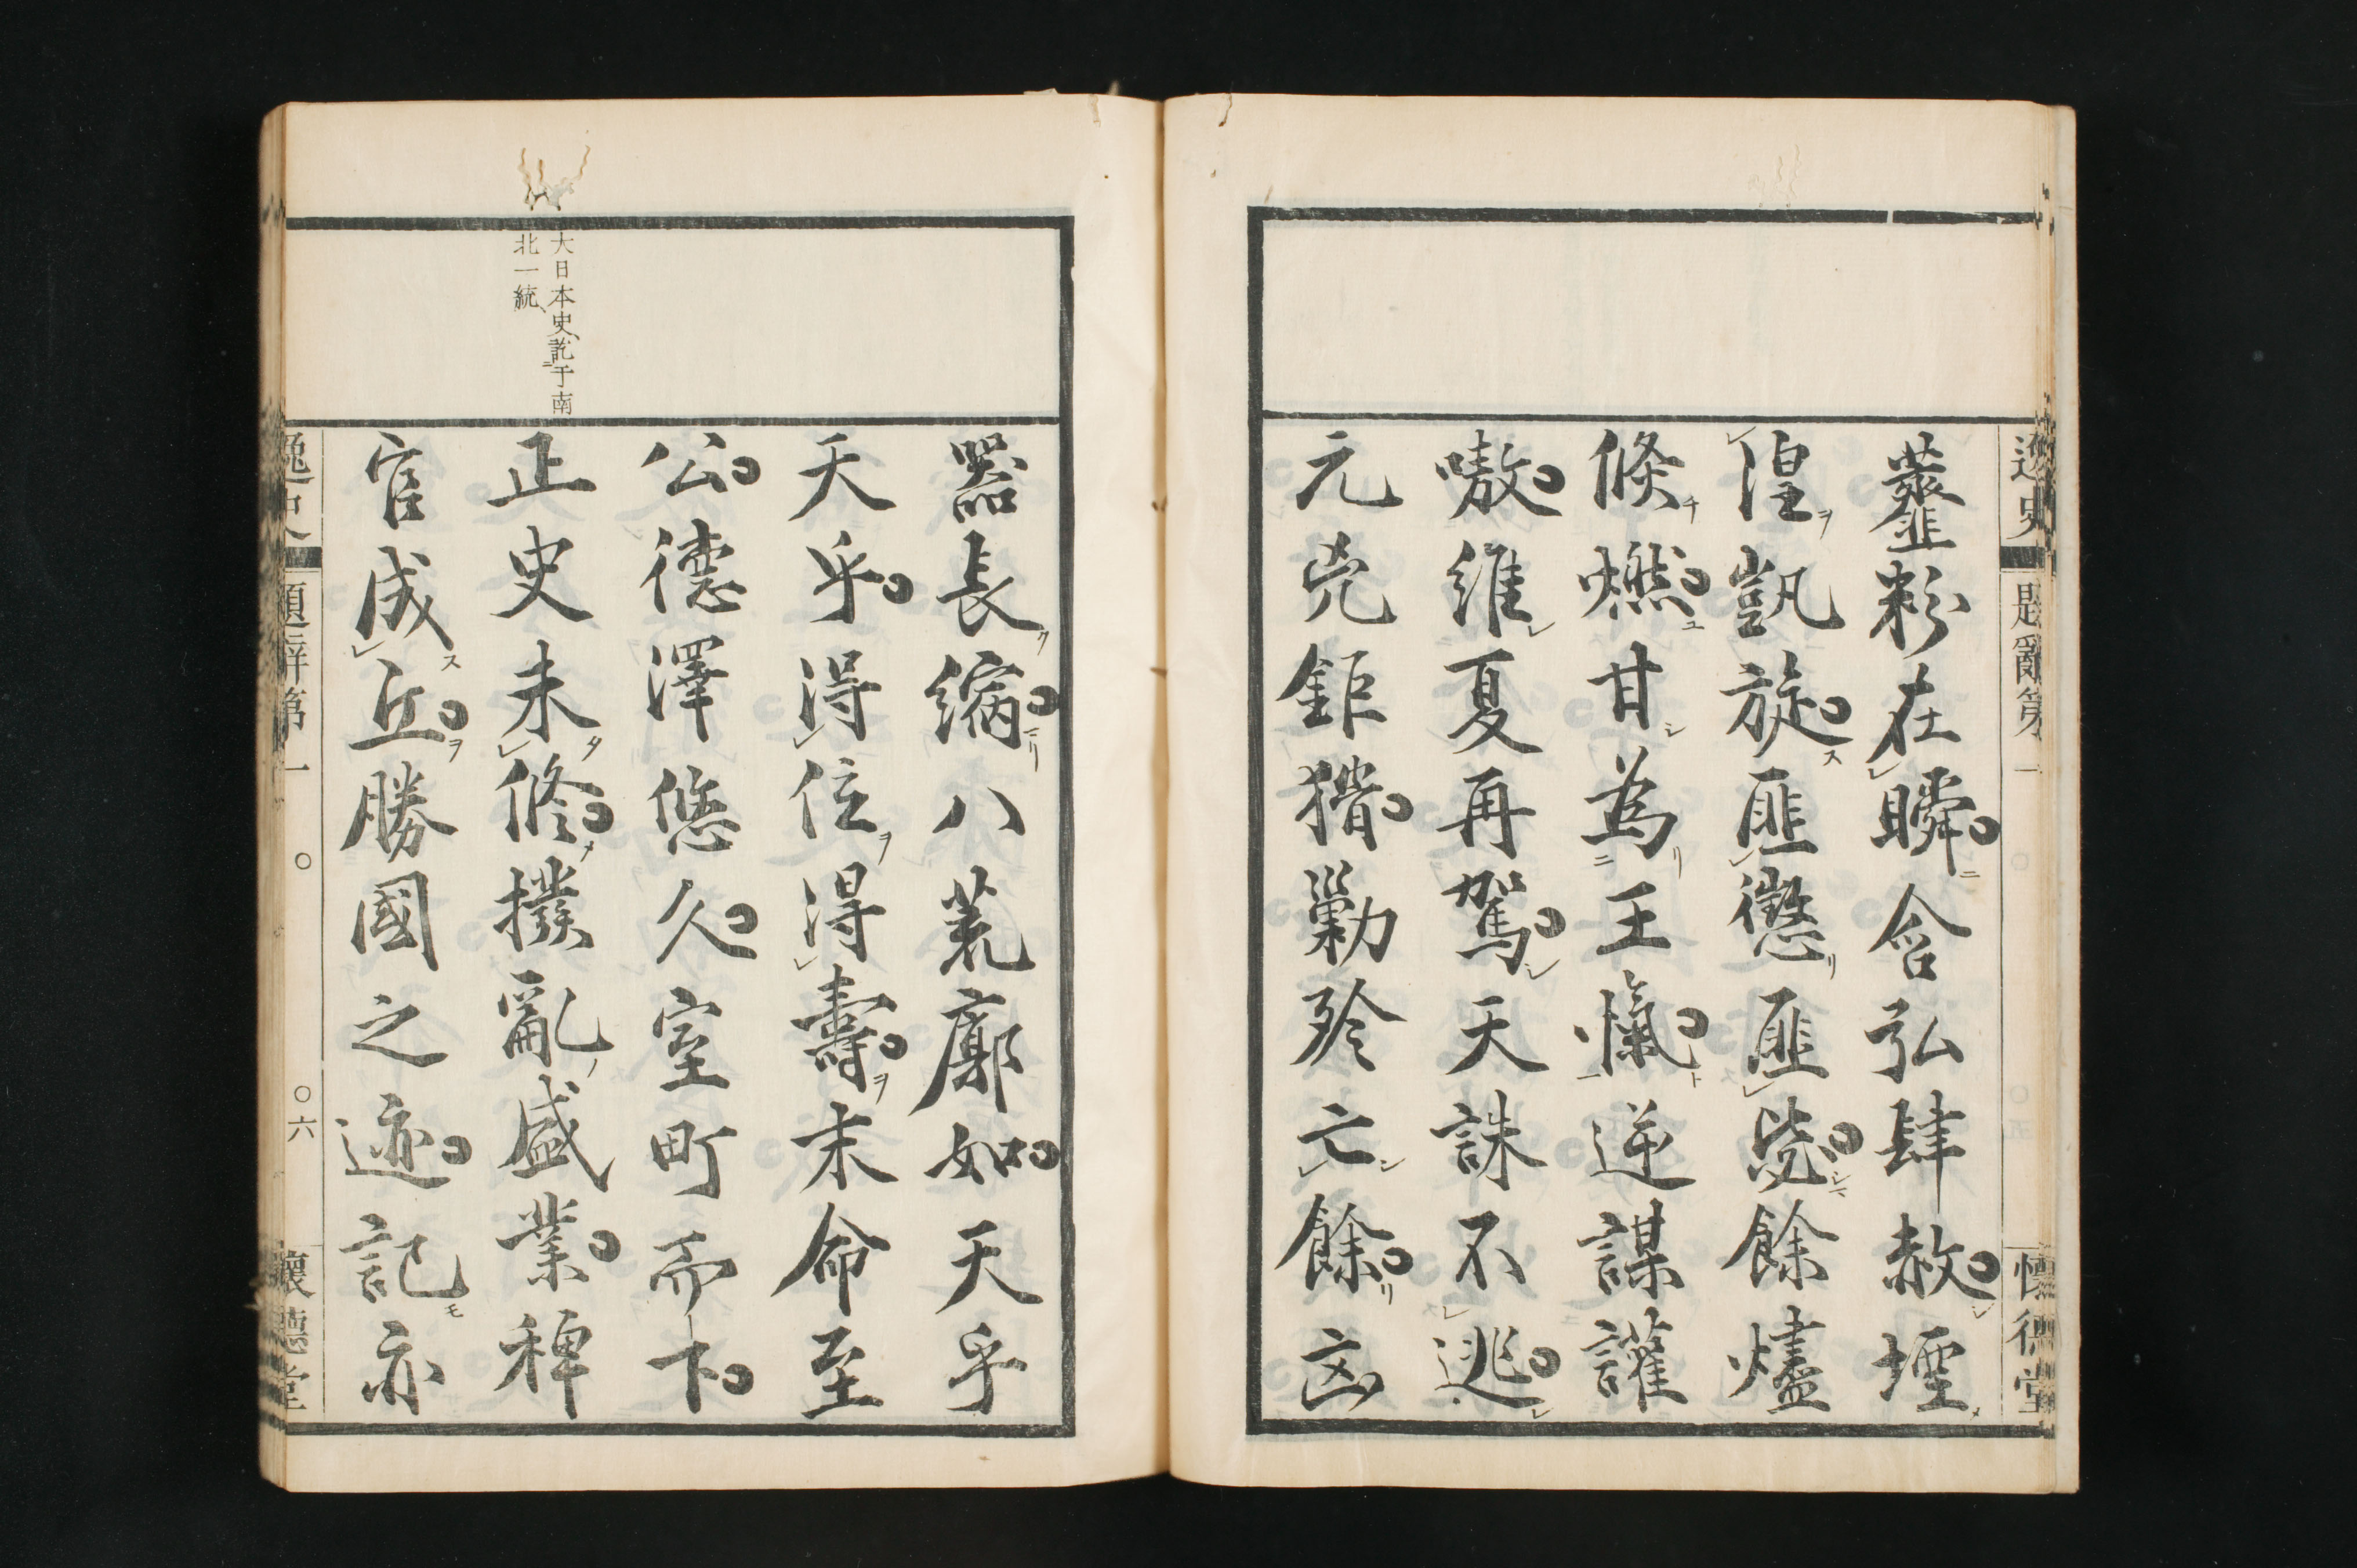 虀粉在瞬含弘肆赦堙
隍凱旋匪懲匪毖餘燼
倏燃甘為王愾逆謀讙
嗷維夏再駕天誅不逃
元兇鉅猾勦殄亡餘凶
器長縮八荒廓如天乎
天乎得位得壽末命至
公德澤悠久室町而下
正史未修撥亂盛業稗
官成丘勝國之迹記亦
大日本史、訖于南
北一統、
逸史
題辭第一
〇六
懷德堂